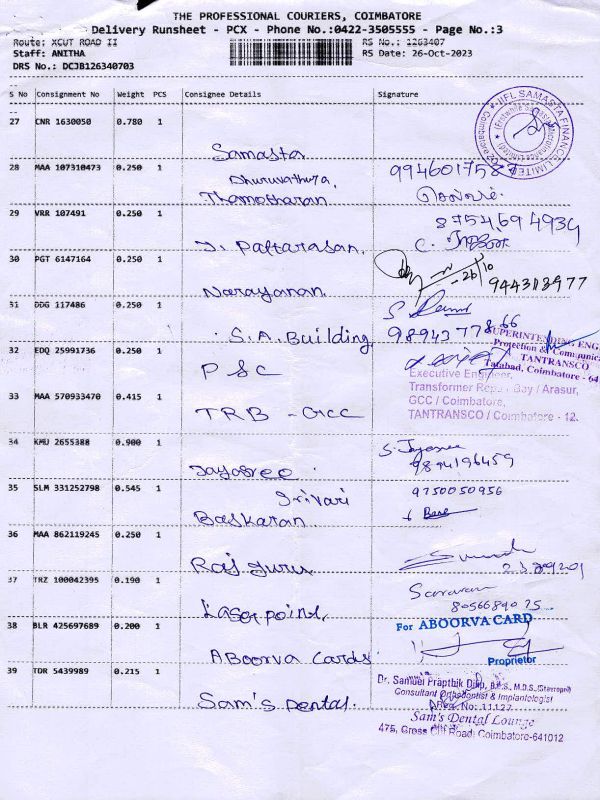 THE PROFESSIONAL COURIERS, COIMBATORE
Delivery Runsheet - PCX - Phone No.:0422-3505555 - Page No.:3
Route: XCUT ROAD II RS No.: 1263407
Staff: ANITHA RS Date: 26-Oct-2023
DRS No.: DCJB126340703
S No Consignment No Weight PCS Consignee Details Signature
27 CNR 1630050 0.780 1 Samasta
IIFL SAMASTA FINANCE LIMITED
28 MAA 107310473 0.250 1 Dhuruvathara,
Thamotharan
29 VRR 107491 0.250 1 Pattarasan
8754694934
30 PGT 6147164 0.250 1 Narayanan
26/10
31 DDG 117486 0.250 1 S.A. Building
SUPERINTENDING ENG
Protection & Communica
TANTRANSCO
Tatabad, Coimbatore - 64
32 EDQ 25991736 0.250 1 PSC
Executive Engineer,
Transformer Repair Bay / Arasur,
GCC / Coimbatore,
TANTRANSCO / Coimbatore - 12.
33 MAA 570933470 0.415 1 TRB - GCC
34 KMU 2655388 0.900 1 Jayasree
S. Jayasree
9894196459
35 SLM 331252798 0.545 1 Srivari
Baskaran
9750050956
36 MAA 862119245 0.250 1 Raj guru
37 TRZ 100042395 0.190 1 Laser point,
Saravanan
38 BLR 425697689 0.200 1 ABoorva Cards
For ABOORVA CARD
Proprietor
39 TDR 5439989 0.215 1 Sam's Dental.
Dr. Samuel Prapthik Dilip, B.D.S., M.D.S.
Consultant Orthodontist & Implantologist
Sam's Dental Lounge
475, Cross Cut Road, Coimbatore-641012